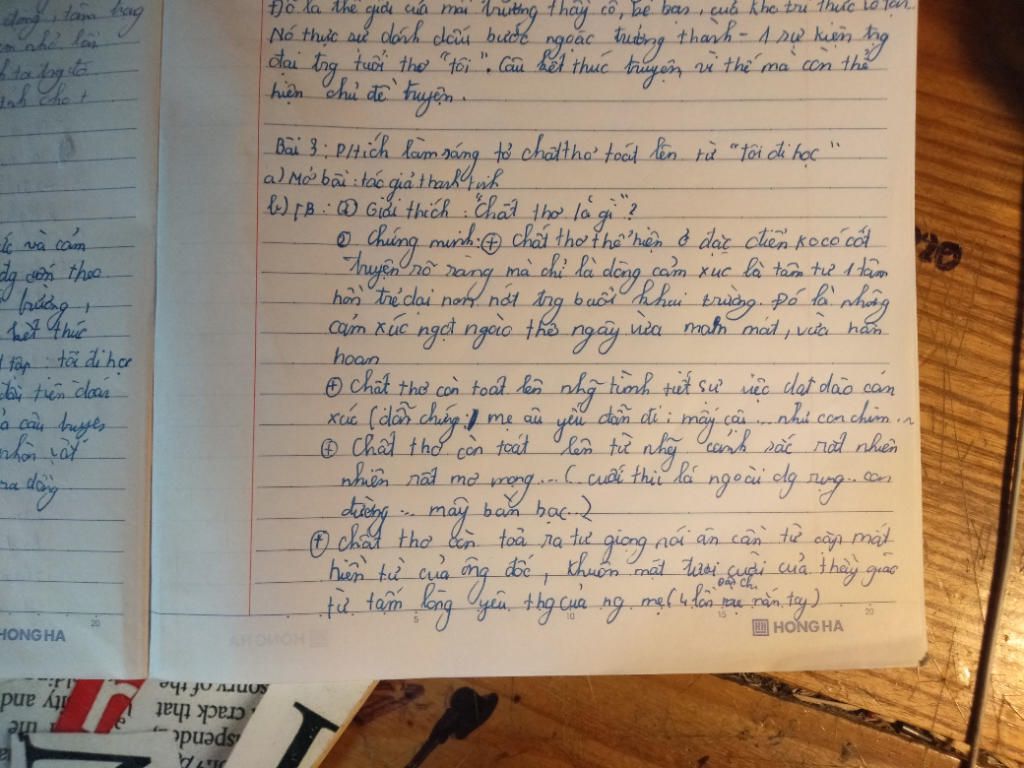 Đó là thế giới của mái trường thầy cô, bè bạn, của kho tri thức vô tận
Nó thực sự đánh dấu bước ngoặc trưởng thành - 1 sự kiện trg
đại trg tuổi thơ "tôi". Câu kết thúc truyện vì thế mà còn thể
hiện chủ đề truyện.
Bài 3: P/tích làm sáng tỏ chất thơ toát lên từ "tôi đi học"
a) Mở bài: tác giả thanh tịnh
b) TB: ① Giải thích: "Chất thơ là gì"?
② Chứng minh: + Chất thơ thể hiện ở đặc điển ko có cốt
truyện rõ ràng mà chỉ là dòng cảm xúc là tâm tư 1 tâm
hồn trẻ dại non nớt trg buổi khai trường. Đó là những
cảm xúc ngọt ngào thơ ngây vừa man mát, vừa hân
hoan
+ Chất thơ còn toát lên nhg tình tiết sự việc dạt dào cảm
xúc (dẫn chứng: mẹ âu yếm dẫn đi; mấy cậu ... như con chim ...
+ Chất thơ còn toát lên từ nhg cảnh sắc rất nhiên
nhiên rất mơ mọng ... (cuối thu lá ngoài đg rụng .. con
đường ... mây bàn bạc ..)
+ Chất thơ còn toả ra từ giọng nói ân cần từ cặp mắt
hiền từ của ông đốc, khuôn mặt tươi cười của thầy giáo
từ tấm lòng yêu thg của ng mẹ (4 lần nắn tay)
ức và cảm
trường,
kết thúc
tập: tôi đi học
câu truyện
ra dòng
5 10 15 20
HONG HA
20
HONG HA
sonry of the
crack that